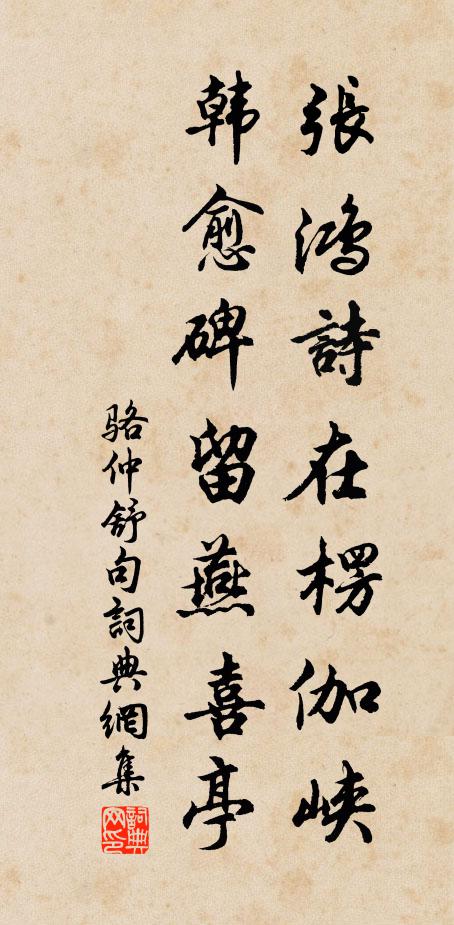 張鴻詩在楞伽峽
韓愈碑留燕喜亭
駱仲舒句詞典網集
詞典網印